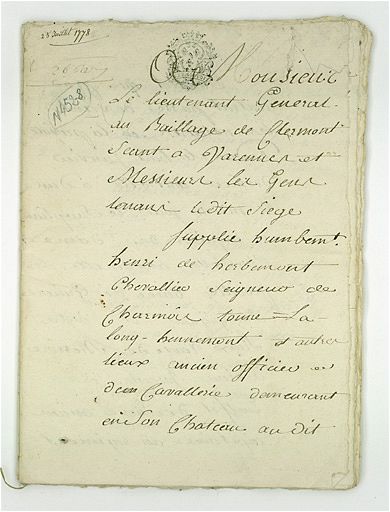 28 Juillet 1778
N 4588
A Monsieur
Le lieutenant General
au Bailliage de Clermont
Seant a Varennes et
Messieurs les Gens
tenans ledit Siege
Supplie humblemt.
henri de
Chevallier Seigneur de
la
long et autres
lieux ancien officier
de Cavallerie demeurant
en Son Chateau au dit